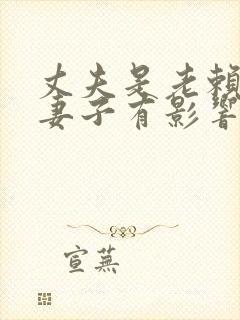 丈夫是老賴
妻子有影響
宣蕪